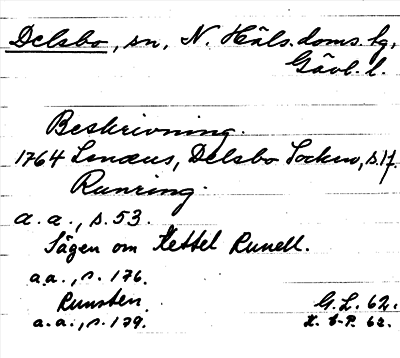 Delsbo, sn, N. Häls. doms. hg,
Gävl. l.
Beskrivning.
1764 Lenæus, Delsbo Socken, s. 17.
Runring.
a. a., s. 53.
Sägen om Kettel Runell.
a.a., s. 176.
Runsten.
a. a., s. 179.
G. L. 62.
62.